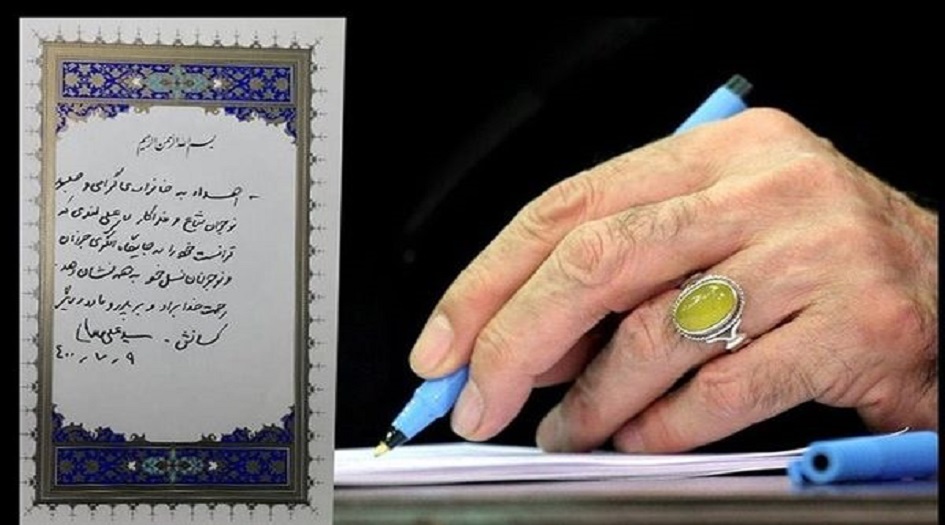 بسم الله الرحمن الرحیم
- اهداء به خانواده‌ی گرامی و صبور
نوجوان شجاع و فداکار علی لندی که
توانست خود را به جایگاه الگوی جوانان
و نوجوانان نسل خود به همه نشان دهد
رحمت خدا بر او و بر پدر و مادر و دیگر
کسانش. سیدعلی خامنه‌ای
۴۰۰ـ۷ـ۹